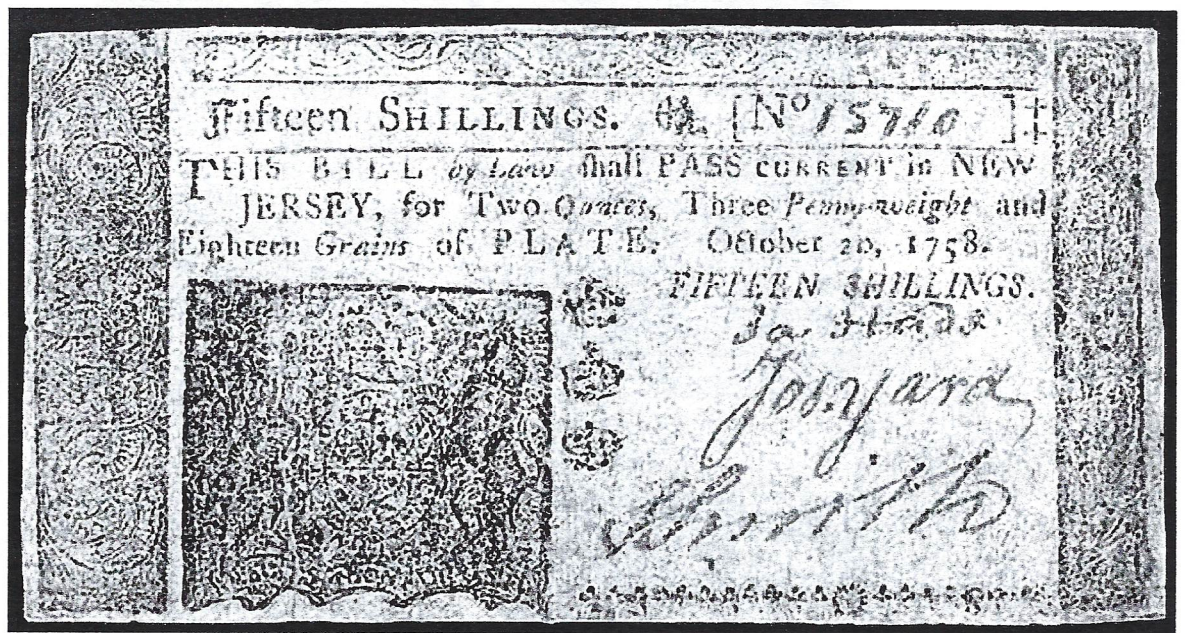 Fifteen SHILLINGS. [No 15710 ]
THIS BILL by Law shall PASS CURRENT in NEW
JERSEY, for Two Ounces, Three Penny-weight and
Eighteen Grains of PLATE. October 20, 1758.
FIFTEEN SHILLINGS.
Jos. Yard
SSmith